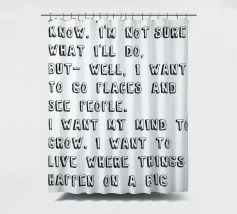 KNOW. I'M NOT SURE
WHAT I'LL DO,
BUT- WELL, I WANT
TO GO PLACES AND
SEE PEOPLE.
I WANT MY MIND TO
GROW. I WANT TO
LIVE WHERE THINGS
HAPPEN ON A BIG